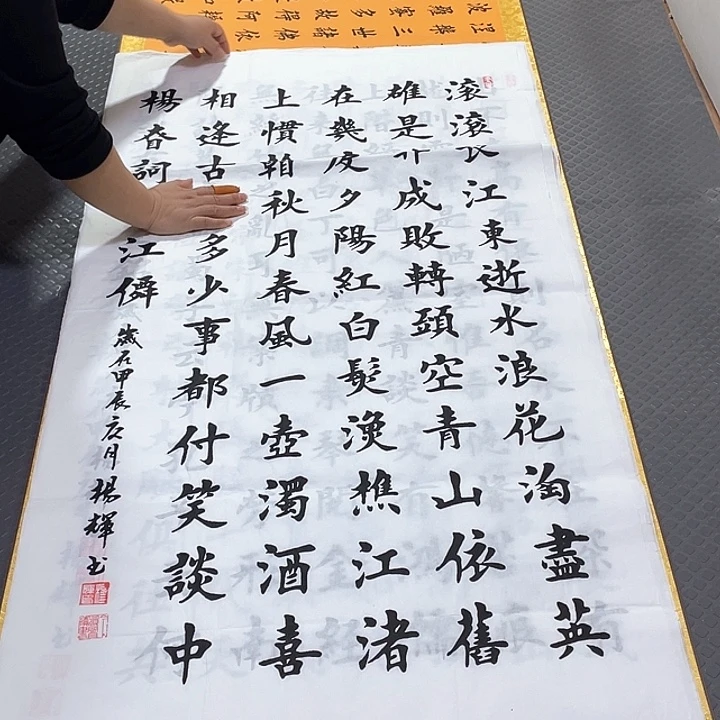 滚滚長江東逝水浪花淘盡英
雄是成敗轉頭空青山依舊
在幾度夕陽紅白髮漁樵江渚
上慣看秋月春風一壺濁酒喜
相逢古多少事都付笑談中
楊昚詞江僊
歲在甲辰月楊輝书